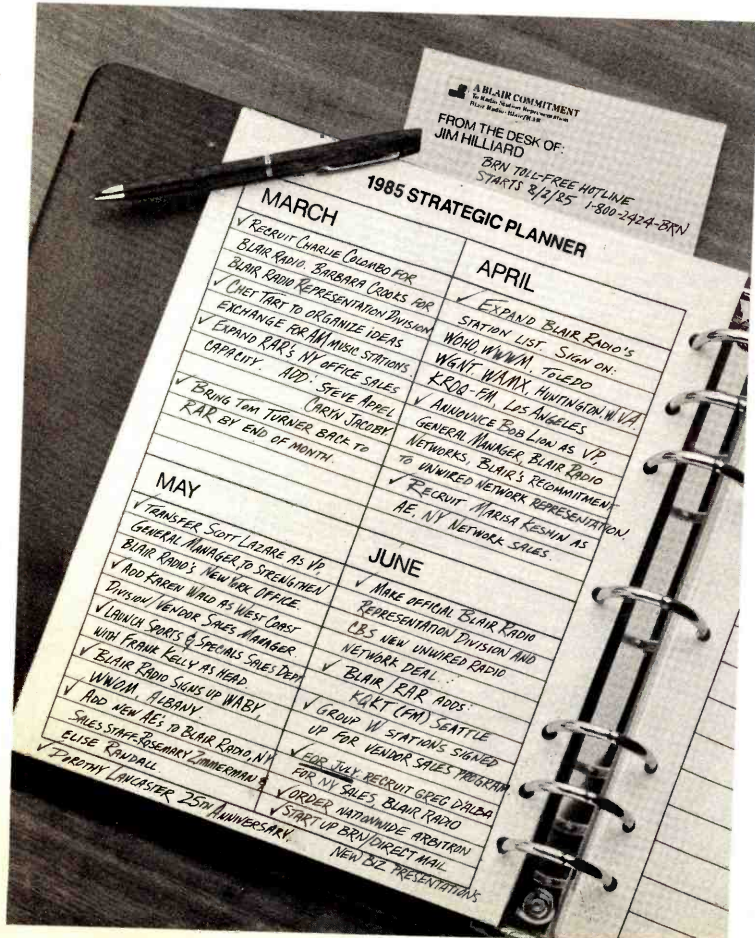 A BLAIR COMMITMENT
To Radio Station Representation
Blair Radio · Blair/RAR
FROM THE DESK OF:
JIM HILLIARD
BRN TOLL-FREE HOTLINE
STARTS 8/2/85 1-800-2424-BRN
1985 STRATEGIC PLANNER
MARCH
✓ RECRUIT CHARLIE COLOMBO FOR
BLAIR RADIO. BARBARA CROOKS FOR
BLAIR RADIO REPRESENTATION DIVISION
✓ CHET TART TO ORGANIZE IDEAS
EXCHANGE FOR AM MUSIC STATIONS
✓ EXPAND RAR'S NY OFFICE SALES
CAPACITY. ADD: STEVE APPEL
CARYN JACOBY.
✓ BRING TOM TURNER BACK TO
RAR BY END OF MONTH.
APRIL
✓ EXPAND BLAIR RADIO'S
STATION LIST. SIGN ON:
WOHO, WWWM, TOLEDO
WGNT WAMX, HUNTINGTON, W. VA.
KROQ-FM, LOS ANGELES
✓ ANNOUNCE BOB LION AS VP,
GENERAL MANAGER, BLAIR RADIO
NETWORKS, BLAIR'S RECOMMITMENT
TO UNWIRED NETWORK REPRESENTATION.
✓ RECRUIT MARISA KESHIN AS
AE, NY NETWORK SALES.
MAY
✓ TRANSFER SCOTT LAZARE AS VP
GENERAL MANAGER, TO STRENGTHEN
BLAIR RADIO'S NEW YORK OFFICE.
✓ ADD KAREN WALD AS WEST COAST
DIVISION/VENDOR SALES MANAGER
✓ LAUNCH SPORTS & SPECIALS SALES DEPT
WITH FRANK KELLY AS HEAD
✓ BLAIR RADIO SIGNS UP WABY,
WWOM, ALBANY.
✓ ADD NEW AE'S TO BLAIR RADIO, NY
SALES STAFF-ROSEMARY ZIMMERMAN &
ELISE RANDALL.
✓ DOROTHY LANCASTER 25TH ANNIVERSARY.
JUNE
✓ MAKE OFFICIAL BLAIR RADIO
REPRESENTATION DIVISION AND
CBS NEW UNWIRED RADIO
NETWORK DEAL.
✓ BLAIR/RAR ADDS:
KQKT (FM) SEATTLE
✓ GROUP W STATIONS SIGNED
UP FOR VENDOR SALES PROGRAM
✓ FOR JULY RECRUIT GREG D'ALBA
FOR NY SALES, BLAIR RADIO
✓ ORDER NATIONWIDE ARBITRON
✓ START UP BRN/DIRECT MAIL
NEW BIZ PRESENTATIONS